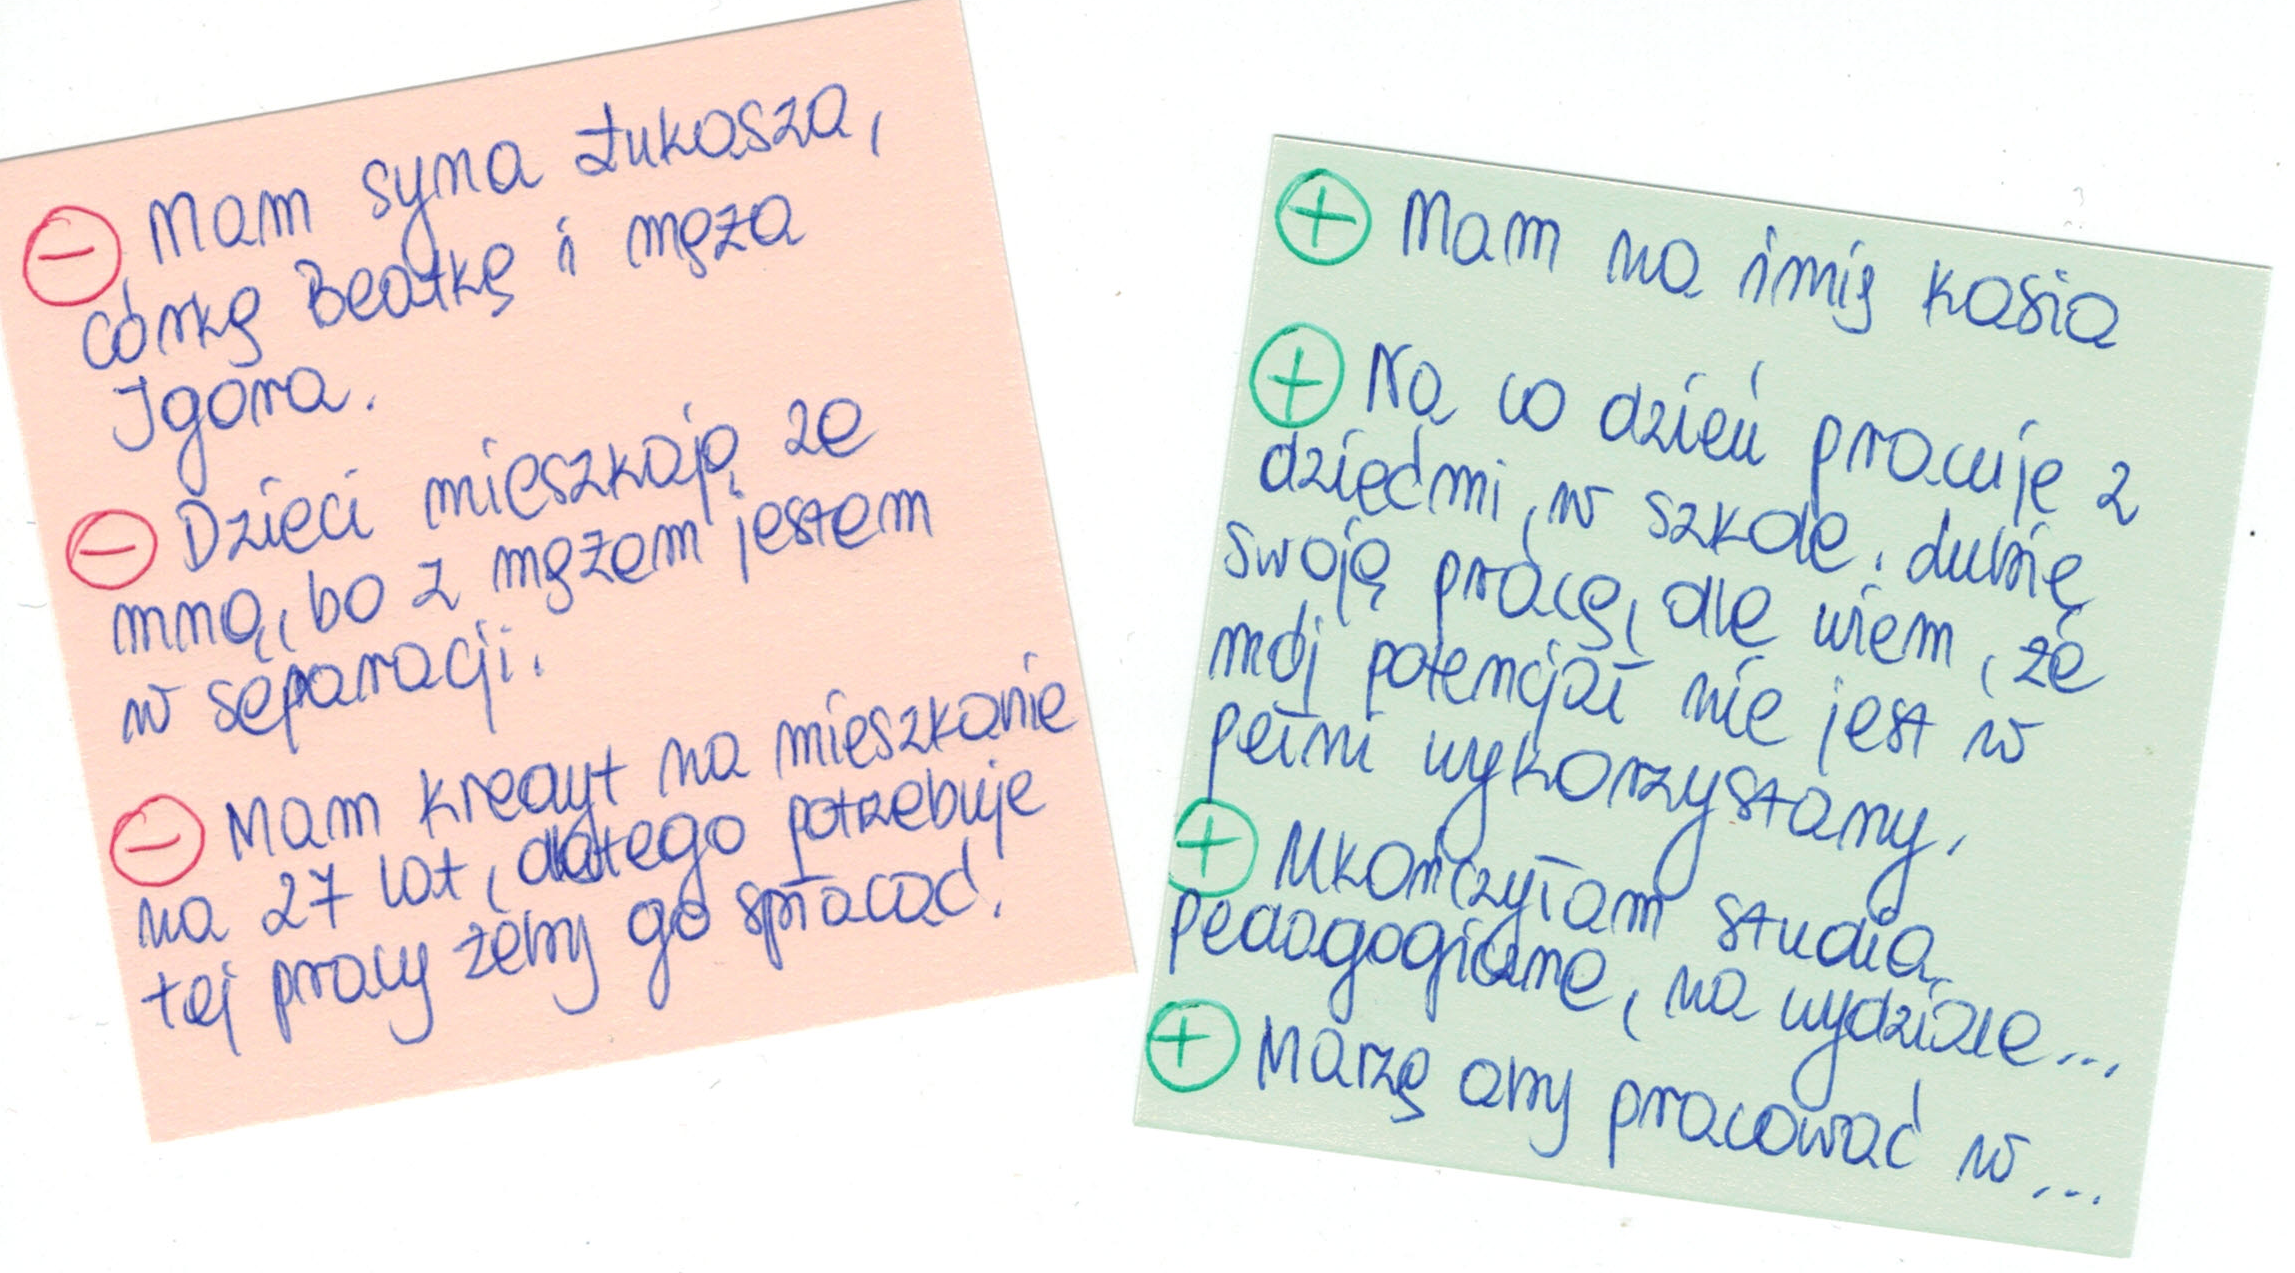 ⊖ Mam syna Łukasza,
córkę Beatkę i męża
Igora.
⊖ Dzieci mieszkają ze
mną, bo z mężem jestem
w separacji.
⊖ Mam kredyt na mieszkanie
na 27 lat, dlatego potrzebuje
tej pracy żeby go spłacać.
⊕ Mam na imię Kasia
⊕ Na co dzień pracuję z
dziećmi, w szkole. Lubię
swoję pracę, ale wiem, że
mój potencjał nie jest w
pełni wykorzystany.
⊕ Ukończyłam studia
pedagogiczne, na wydziale...
⊕ Marzę aby pracować w...